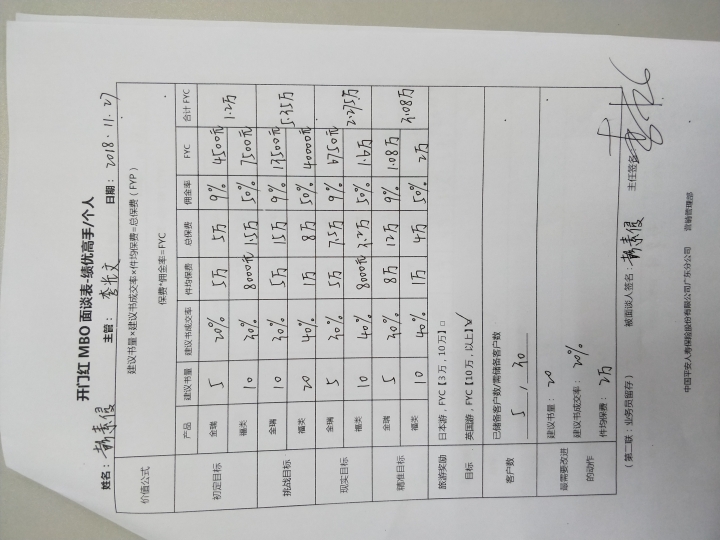 开门红 MBO 面谈表-绩优高手/个人
姓名： 主管： 李光文 日期： 2018.11.27
价值公式 建议书量×建议书成交率×件均保费=总保费（FYP）
保费*佣金率=FYC
产品 建议书量 建议书成交率 件均保费 总保费 佣金率 FYC 合计 FYC
初定目标 金瑞 5 20% 5万 5万 9% 4500元 1.2万
福类 10 30% 8000元 1.5万 50% 7500元
挑战目标 金瑞 10 30% 5万 15万 9% 13500元 5.35万
福类 20 40% 1万 8万 50% 40000元
现实目标 金瑞 5 30% 5万 7.5万 9% 6750元 2.275万
福类 10 40% 8000元 3.2万 50% 1.6万
精准目标 金瑞 5 30% 8万 12万 9% 1.08万 3.08万
福类 10 40% 1万 4万 50% 2万
旅游奖励 日本游，FYC【3万，10万】□
目标 英国游，FYC【10万，以上】✓
客户数 已储备客户数/需储备客户数
5 , 30
最需要改进 建议书量： 20
的动作 建议书成交率： 20%
件均保费： 2万
（第二联：业务员留存） 被面谈人签名： 主任签名：
中国平安人寿保险股份有限公司广东分公司 营销管理部